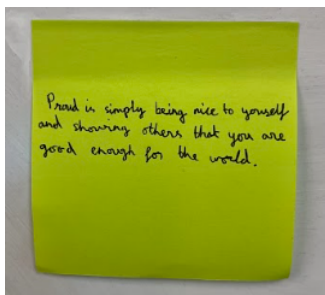 Proud is simply being nice to yourself
and showing others that you are
good enough for the world.